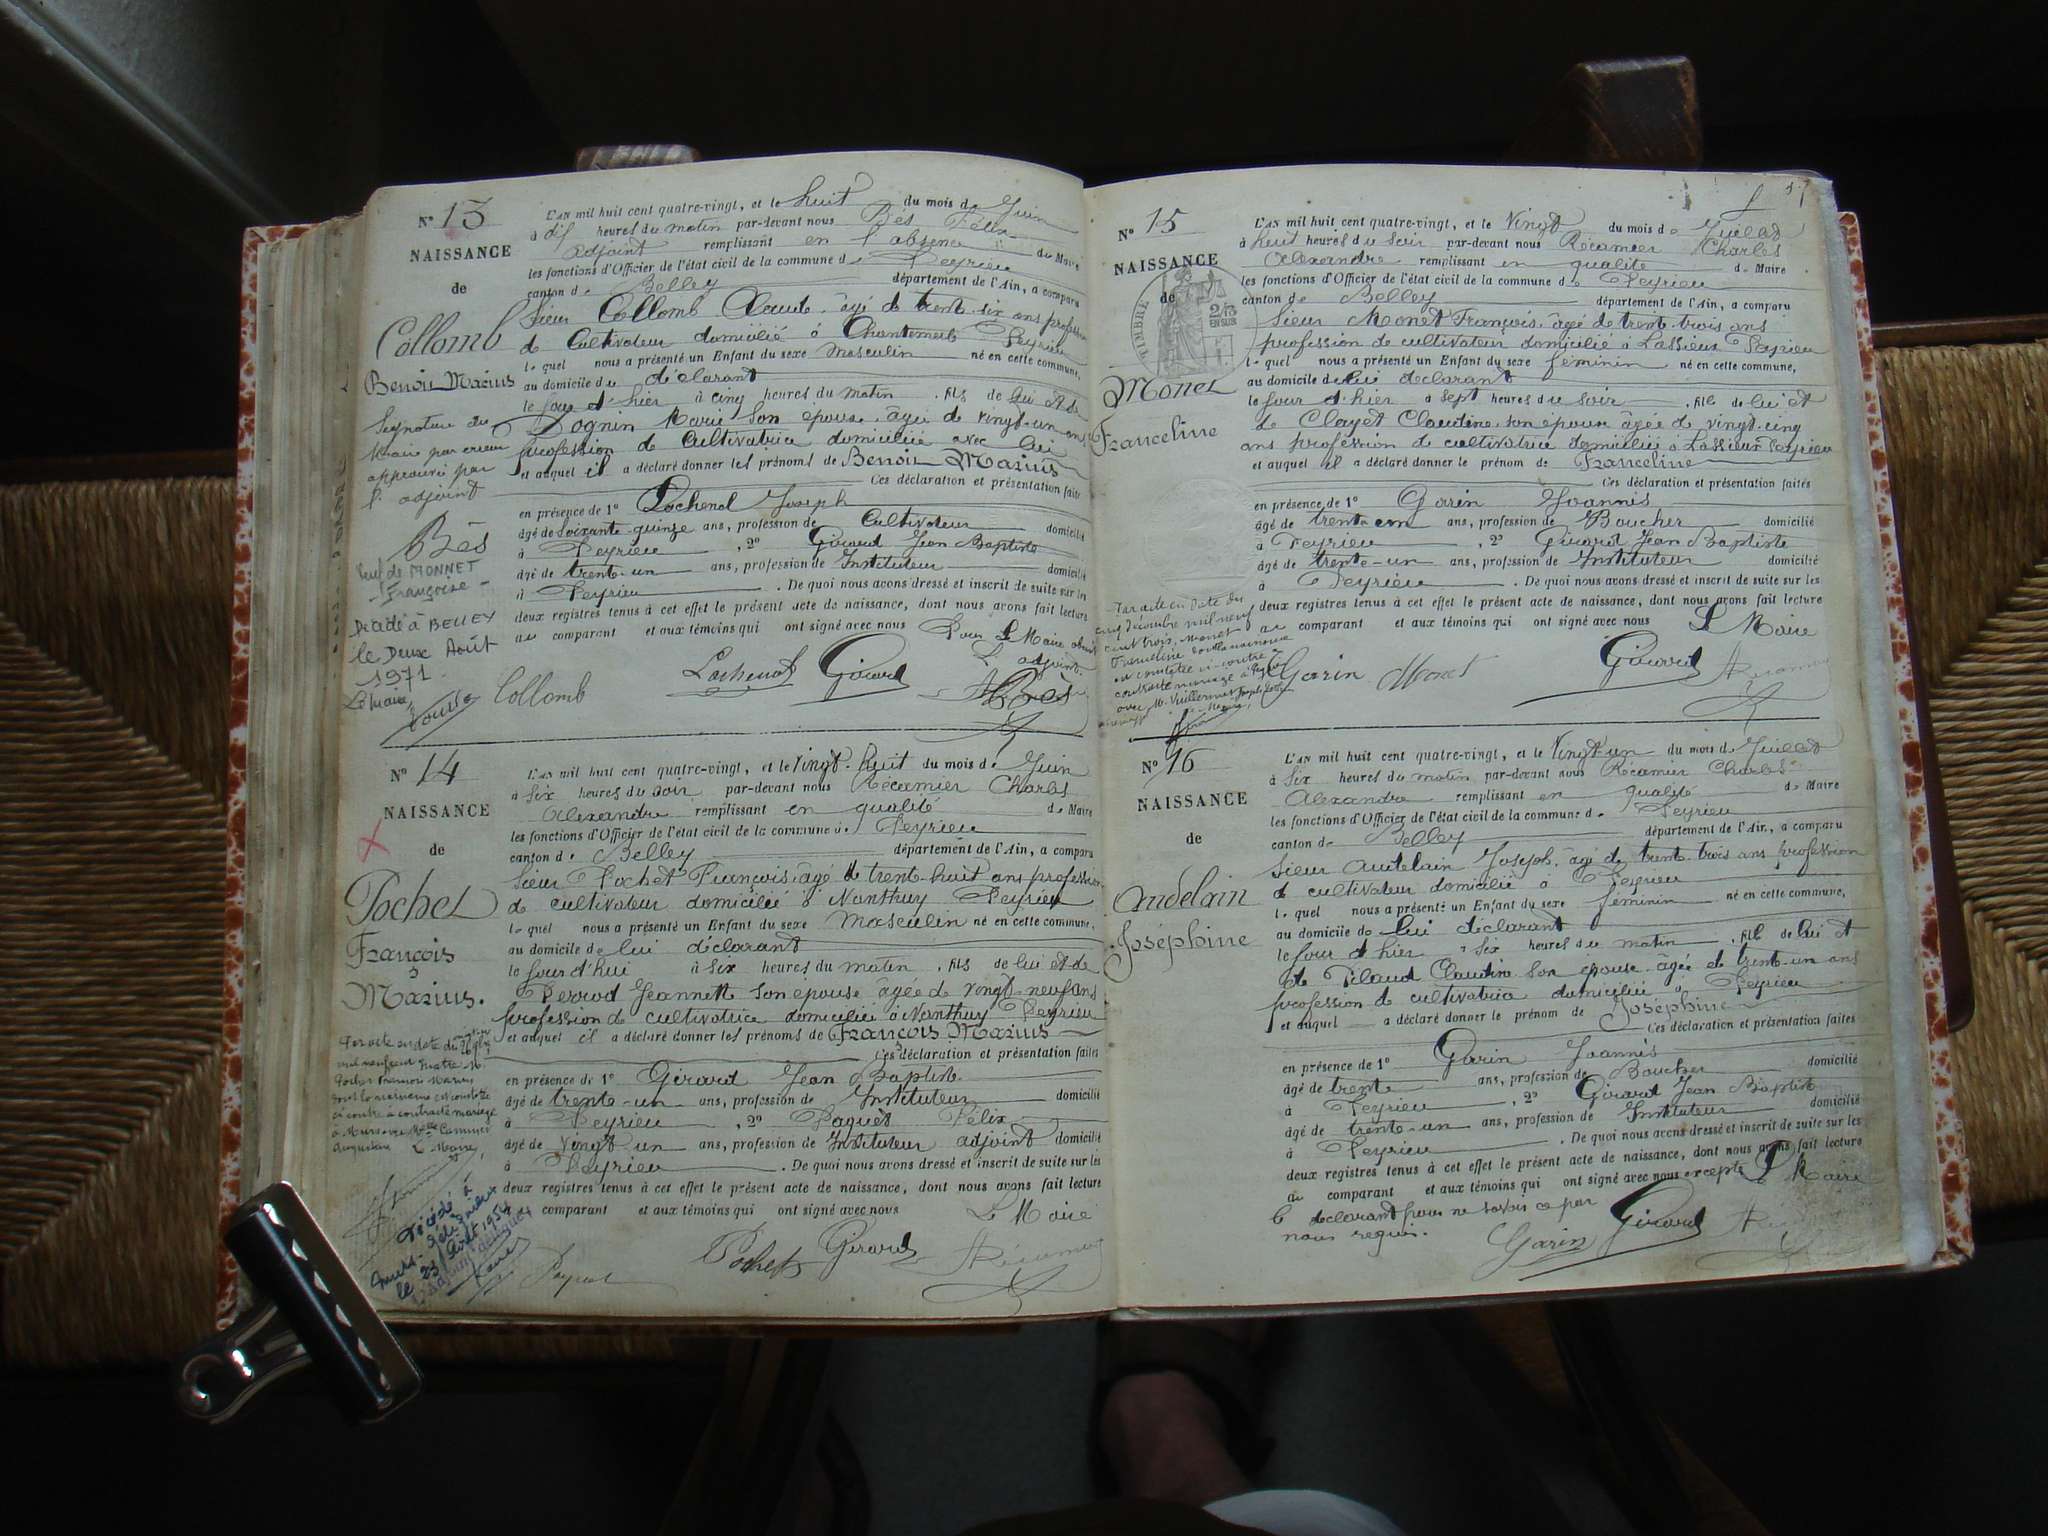 N° 13
NAISSANCE
de
Collomb
Benoit Marius
Signature du
Maire par erreur
approuvé par
l'adjoint
Bès
Veuf de MONNET
Françoise
Décédé à BELLEY
le Deux Août
1971
Le Maire,
L'AN mil huit cent quatre-vingt, et le huit du mois de Juin
à dix heures du matin par-devant nous Bès Félix
adjoint remplissant en l'absence du Maire
les fonctions d'Officier de l'état civil de la commune de Peyrieu
canton de Belley département de l'Ain, a comparu
Sieur Collomb Claude âgé de trente-six ans profession
de Cultivateur domicilié à Chantemerle Peyrieu
lequel nous a présenté un Enfant du sexe masculin né en cette commune,
au domicile du déclarant
le jour d'hier à cinq heures du matin, fils de lui et de
Dognin Marie son épouse âgée de vingt-un ans
profession de Cultivatrice domiciliée avec lui
et auquel il a déclaré donner les prénoms de Benoit Marius
Ces déclaration et présentation faites
en présence de 1° Lochenal Joseph
âgé de soixante-quinze ans, profession de Cultivateur domicilié
à Peyrieu, 2° Girard Jean Baptiste
âgé de trente-un ans, profession de Instituteur domicilié
à Peyrieu. De quoi nous avons dressé et inscrit de suite sur les
deux registres tenus à cet effet le présent acte de naissance, dont nous avons fait lecture
au comparant et aux témoins qui ont signé avec nous Pour Le Maire absent
L'adjoint
Collomb Lochenal Girard Bès
N° 14
NAISSANCE
de
Pochet
François
Marius.
Par acte en date du
mil neuf cent quatre M.
Pochet François Marius
dont la naissance est constatée
ci-contre a contracté mariage
à Murs avec Melle
Augustine Le Maire,
Décédé à
Murs-Gélignieux
le 23 Août 1954
L'AN mil huit cent quatre-vingt, et le vingt-huit du mois de Juin
à six heures du soir par-devant nous Récamier Charles
Alexandre remplissant en qualité de Maire
les fonctions d'Officier de l'état civil de la commune de Peyrieu
canton de Belley département de l'Ain, a comparu
Sieur Pochet François âgé de trente-huit ans profession
de cultivateur domicilié à Nanthuy Peyrieu
lequel nous a présenté un Enfant du sexe masculin né en cette commune,
au domicile de lui déclarant
le jour d'hui à six heures du matin, fils de lui et de
Perrod Jeannette son épouse âgée de vingt-neuf ans
profession de cultivatrice domiciliée à Nanthuy Peyrieu
et auquel il a déclaré donner les prénoms de François Marius
Ces déclaration et présentation faites
en présence de 1° Girard Jean Baptiste
âgé de trente-un ans, profession de Instituteur domicilié
à Peyrieu, 2° Paquet Félix
âgé de vingt-un ans, profession de Instituteur adjoint domicilié
à Peyrieu. De quoi nous avons dressé et inscrit de suite sur les
deux registres tenus à cet effet le présent acte de naissance, dont nous avons fait lecture
au comparant et aux témoins qui ont signé avec nous
Le Maire
Pochet Girard
N° 15
NAISSANCE
de
TIMBRE
Monet
Franceline
Par acte en date du
cinq Décembre mil neuf
cent trois, Monet
Franceline dont la naissance
est constatée ci-contre a
contracté mariage à
avec M.
L'AN mil huit cent quatre-vingt, et le vingt du mois de Juillet
à huit heures du soir par-devant nous Récamier Charles
Alexandre remplissant en qualité de Maire
les fonctions d'Officier de l'état civil de la commune de Peyrieu
canton de Belley département de l'Ain, a comparu
Sieur Monet François âgé de trente-trois ans
profession de cultivateur domicilié à Lassieux Peyrieu
lequel nous a présenté un Enfant du sexe féminin né en cette commune,
au domicile de lui déclarant
le jour d'hier à sept heures du soir, fille de lui et
de Clayet Claudine son épouse âgée de vingt-cinq
ans profession de cultivatrice domiciliée à Lassieux Peyrieu
et auquel il a déclaré donner le prénom de Franceline
Ces déclaration et présentation faites
en présence de 1° Garin Joannès
âgé de trente ans, profession de Boucher domicilié
à Peyrieu, 2° Girard Jean Baptiste
âgé de trente-un ans, profession de Instituteur domicilié
à Peyrieu. De quoi nous avons dressé et inscrit de suite sur les
deux registres tenus à cet effet le présent acte de naissance, dont nous avons fait lecture
au comparant et aux témoins qui ont signé avec nous Le Maire
Garin Monet Girard
N° 16
NAISSANCE
de
Andelain
Joséphine
L'AN mil huit cent quatre-vingt, et le vingt-un du mois de Juillet
à six heures du matin par-devant nous Récamier Charles
Alexandre remplissant en qualité de Maire
les fonctions d'Officier de l'état civil de la commune de Peyrieu
canton de Belley département de l'Ain, a comparu
Sieur Andelain Joseph âgé de trente-trois ans profession
de cultivateur domicilié à Peyrieu
lequel nous a présenté un Enfant du sexe féminin né en cette commune,
au domicile de lui déclarant
le jour d'hier à six heures du matin, fille de lui et
de Pilaud Claudine son épouse âgée de trente-un ans
profession de cultivatrice domiciliée à Peyrieu
et auquel a déclaré donner le prénom de Joséphine
Ces déclaration et présentation faites
en présence de 1° Garin Joannès
âgé de trente ans, profession de Boucher domicilié
à Peyrieu, 2° Girard Jean Baptiste
âgé de trente-un ans, profession de Instituteur domicilié
à Peyrieu. De quoi nous avons dressé et inscrit de suite sur les
deux registres tenus à cet effet le présent acte de naissance, dont nous avons fait lecture
au comparant et aux témoins qui ont signé avec nous excepté Le Maire
le déclarant pour ne savoir ce par
nous requis.
Garin Girard